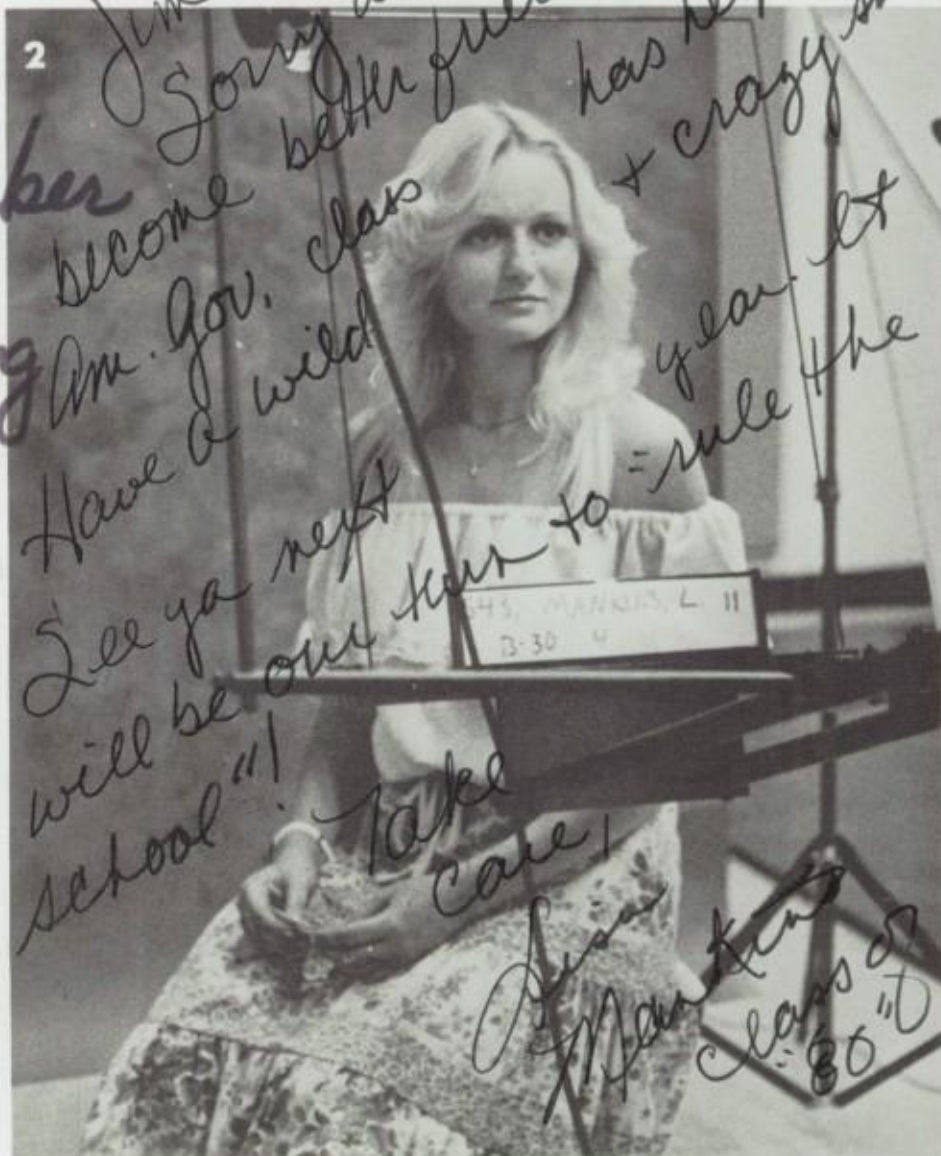 2
Jim
Sorry
become better
has
ber
Am. Gov. class
+ crazy
g
Have a wild
See ya next year. It
will be our turn to "rule the
school"!
Take
care,
Lisa
Mankins
class of
"80"
MANKINS, L. 11
B-30 4